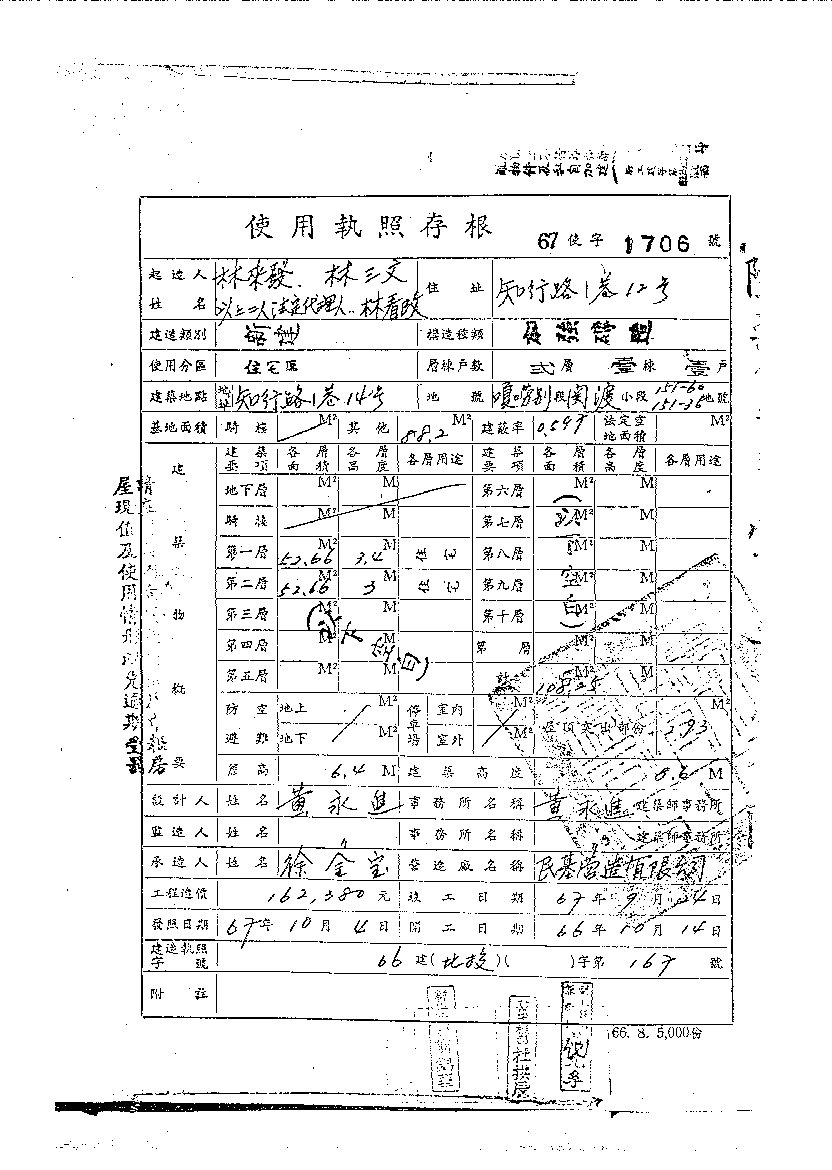 使用執照存根
67 使字 1706 號
起造人姓名 林來發、林三文 以上二人法定代理人：林看政 住址 知行路1巷12号
建造類別 構造種類 加強磚造
使用分區 住宅區 層棟戶數 弍層 壹棟 壹戶
建築地點 知行路1巷14号 地號 嗄嘮別段関渡小段 151-60 151-36 地號
基地面積 騎樓 M² 其他 88.2 M² 建蔽率 0.597 法定空地面積 M²
建築物概要
建築要項 各層面積 各層高度 各層用途 建築要項 各層面積 各層高度 各層用途
地下層 M² M 第六層 M² M
騎樓 M² M 第七層 M² M
第一層 52.66 M² 3.4 M 住宅 第八層 M² M
第二層 52.66 M² 3 M 住宅 第九層 M² M
第三層 M² M 第十層 M² M
第四層 M² M 第 層 M² M
(以下空白)
(以下空白)
第五層 M² M 計 108.25 M² M
防空避難 地上 M² 地下 M² 停車場 室內 M² 室外 M² 屋頂突出部份 2.93
簷高 6.4 M 建築高度 M
設計人 姓名 黃永進 事務所名稱 黃永進 建築師事務所
監造人 姓名 〃 事務所名稱 〃 建築師事務所
承造人 姓名 徐金宝 營造廠名稱 民基營造有限公司
工程造價 162,380 元 竣工日期 67年9月24日
發照日期 67年10月4日 開工日期 66年10月14日
建造執照字號 66 建(北投)( )字第 167 號
附註
66. 8. 5,000份